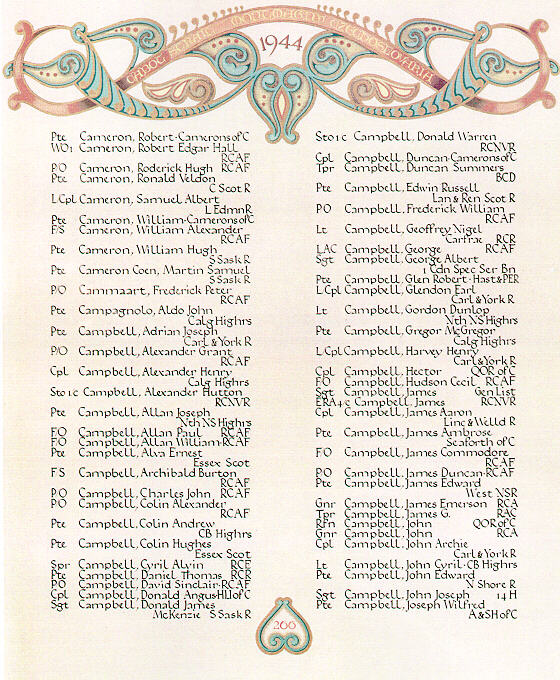 CAPOT SCHILT MONTMAGNY CZECHOSLOVAKIA
1944
Pte Cameron, Robert·Camerons of C
WO1 Cameron, Robert Edgar Hall
RCAF
P/O Cameron, Roderick Hugh RCAF
Pte Cameron, Ronald Veldon
C Scot R
L Cpl Cameron, Samuel Albert
L Edmn R
Pte Cameron, William·Camerons of C
F/S Cameron, William Alexander
RCAF
Pte Cameron, William Hugh
S Sask R
Pte Cameron Coen, Martin Samuel
S Sask R
P/O Cammaart, Frederick Peter
RCAF
Pte Campagnolo, Aldo John
Calg Highrs
Pte Campbell, Adrian Joseph
Carl & York R
P/O Campbell, Alexander Grant
RCAF
Cpl Campbell, Alexander Henry
Calg Highrs
Sto 1 c Campbell, Alexander Hutton
RCNVR
Pte Campbell, Allan Joseph
Nth NS Highrs
F/O Campbell, Allan Paul RCAF
F/O Campbell, Allan William·RCAF
Pte Campbell, Alva Ernest
Essex Scot
F S Campbell, Archibald Burton
RCAF
P.O Campbell, Charles John RCAF
P.O Campbell, Colin Alexander
RCAF
Pte Campbell, Colin Andrew
CB Highrs
Pte Campbell, Colin Hughes
Essex Scot
Spr Campbell, Cyril Alvin RCE
Pte Campbell, Daniel Thomas RCR
P.O Campbell, David Sinclair·RCAF
Cpl Campbell, Donald Angus·HLI of C
Sgt Campbell, Donald James
McKenzie S Sask R
Sto 1 c Campbell, Donald Warren
RCNVR
Cpl Campbell, Duncan·Camerons of C
Tpr Campbell, Duncan Summers
BCD
Pte Campbell, Edwin Russell
Lan & Ren Scot R
P.O Campbell, Frederick William
RCAF
Lt Campbell, Geoffrey Nigel
Carfrax RCR
LAC Campbell, George RCAF
Sgt Campbell, George Albert
1 Cdn Spec Ser Bn
Pte Campbell, Glen Robert·Hast & PER
L Cpl Campbell, Glendon Earl
Carl & York R
Lt Campbell, Gordon Dunlop
Nth NS Highrs
Pte Campbell, Gregor McGregor
Calg Highrs
L/Cpl Campbell, Harvey Henry
Carl & York R
Cpl Campbell, Hector QOR of C
F.O Campbell, Hudson Cecil RCAF
Sgt Campbell, James Gen List
ERA 4 c Campbell, James RCNVR
Cpl Campbell, James Aaron
Linc & Welld R
Pte Campbell, James Ambrose
Seaforth of C
F.O Campbell, James Commodore
RCAF
P.O Campbell, James Duncan·RCAF
Pte Campbell, James Edward
West NSR
Gnr Campbell, James Emerson RCA
Tpr Campbell, James G. RAC
RFn Campbell, John QOR of C
Gnr Campbell, John RCA
Cpl Campbell, John Archie
Carl & York R
Lt Campbell, John Cyril·CB Highrs
Pte Campbell, John Edward
N Shore R
Sgt Campbell, John Joseph 14 H
Pte Campbell, Joseph Wilfred
A & SH of C
266